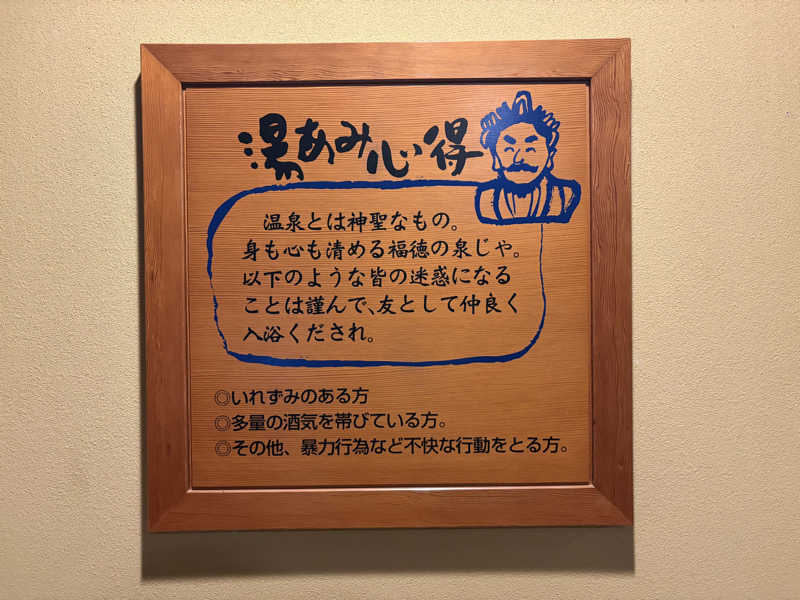 湯あみ心得
温泉とは神聖なもの。
身も心も清める福徳の泉じゃ。
以下のような皆の迷惑になる
ことは謹んで、友として仲良く
入浴くだされ。
◎いれずみのある方
◎多量の酒気を帯びている方。
◎その他、暴力行為など不快な行動をとる方。